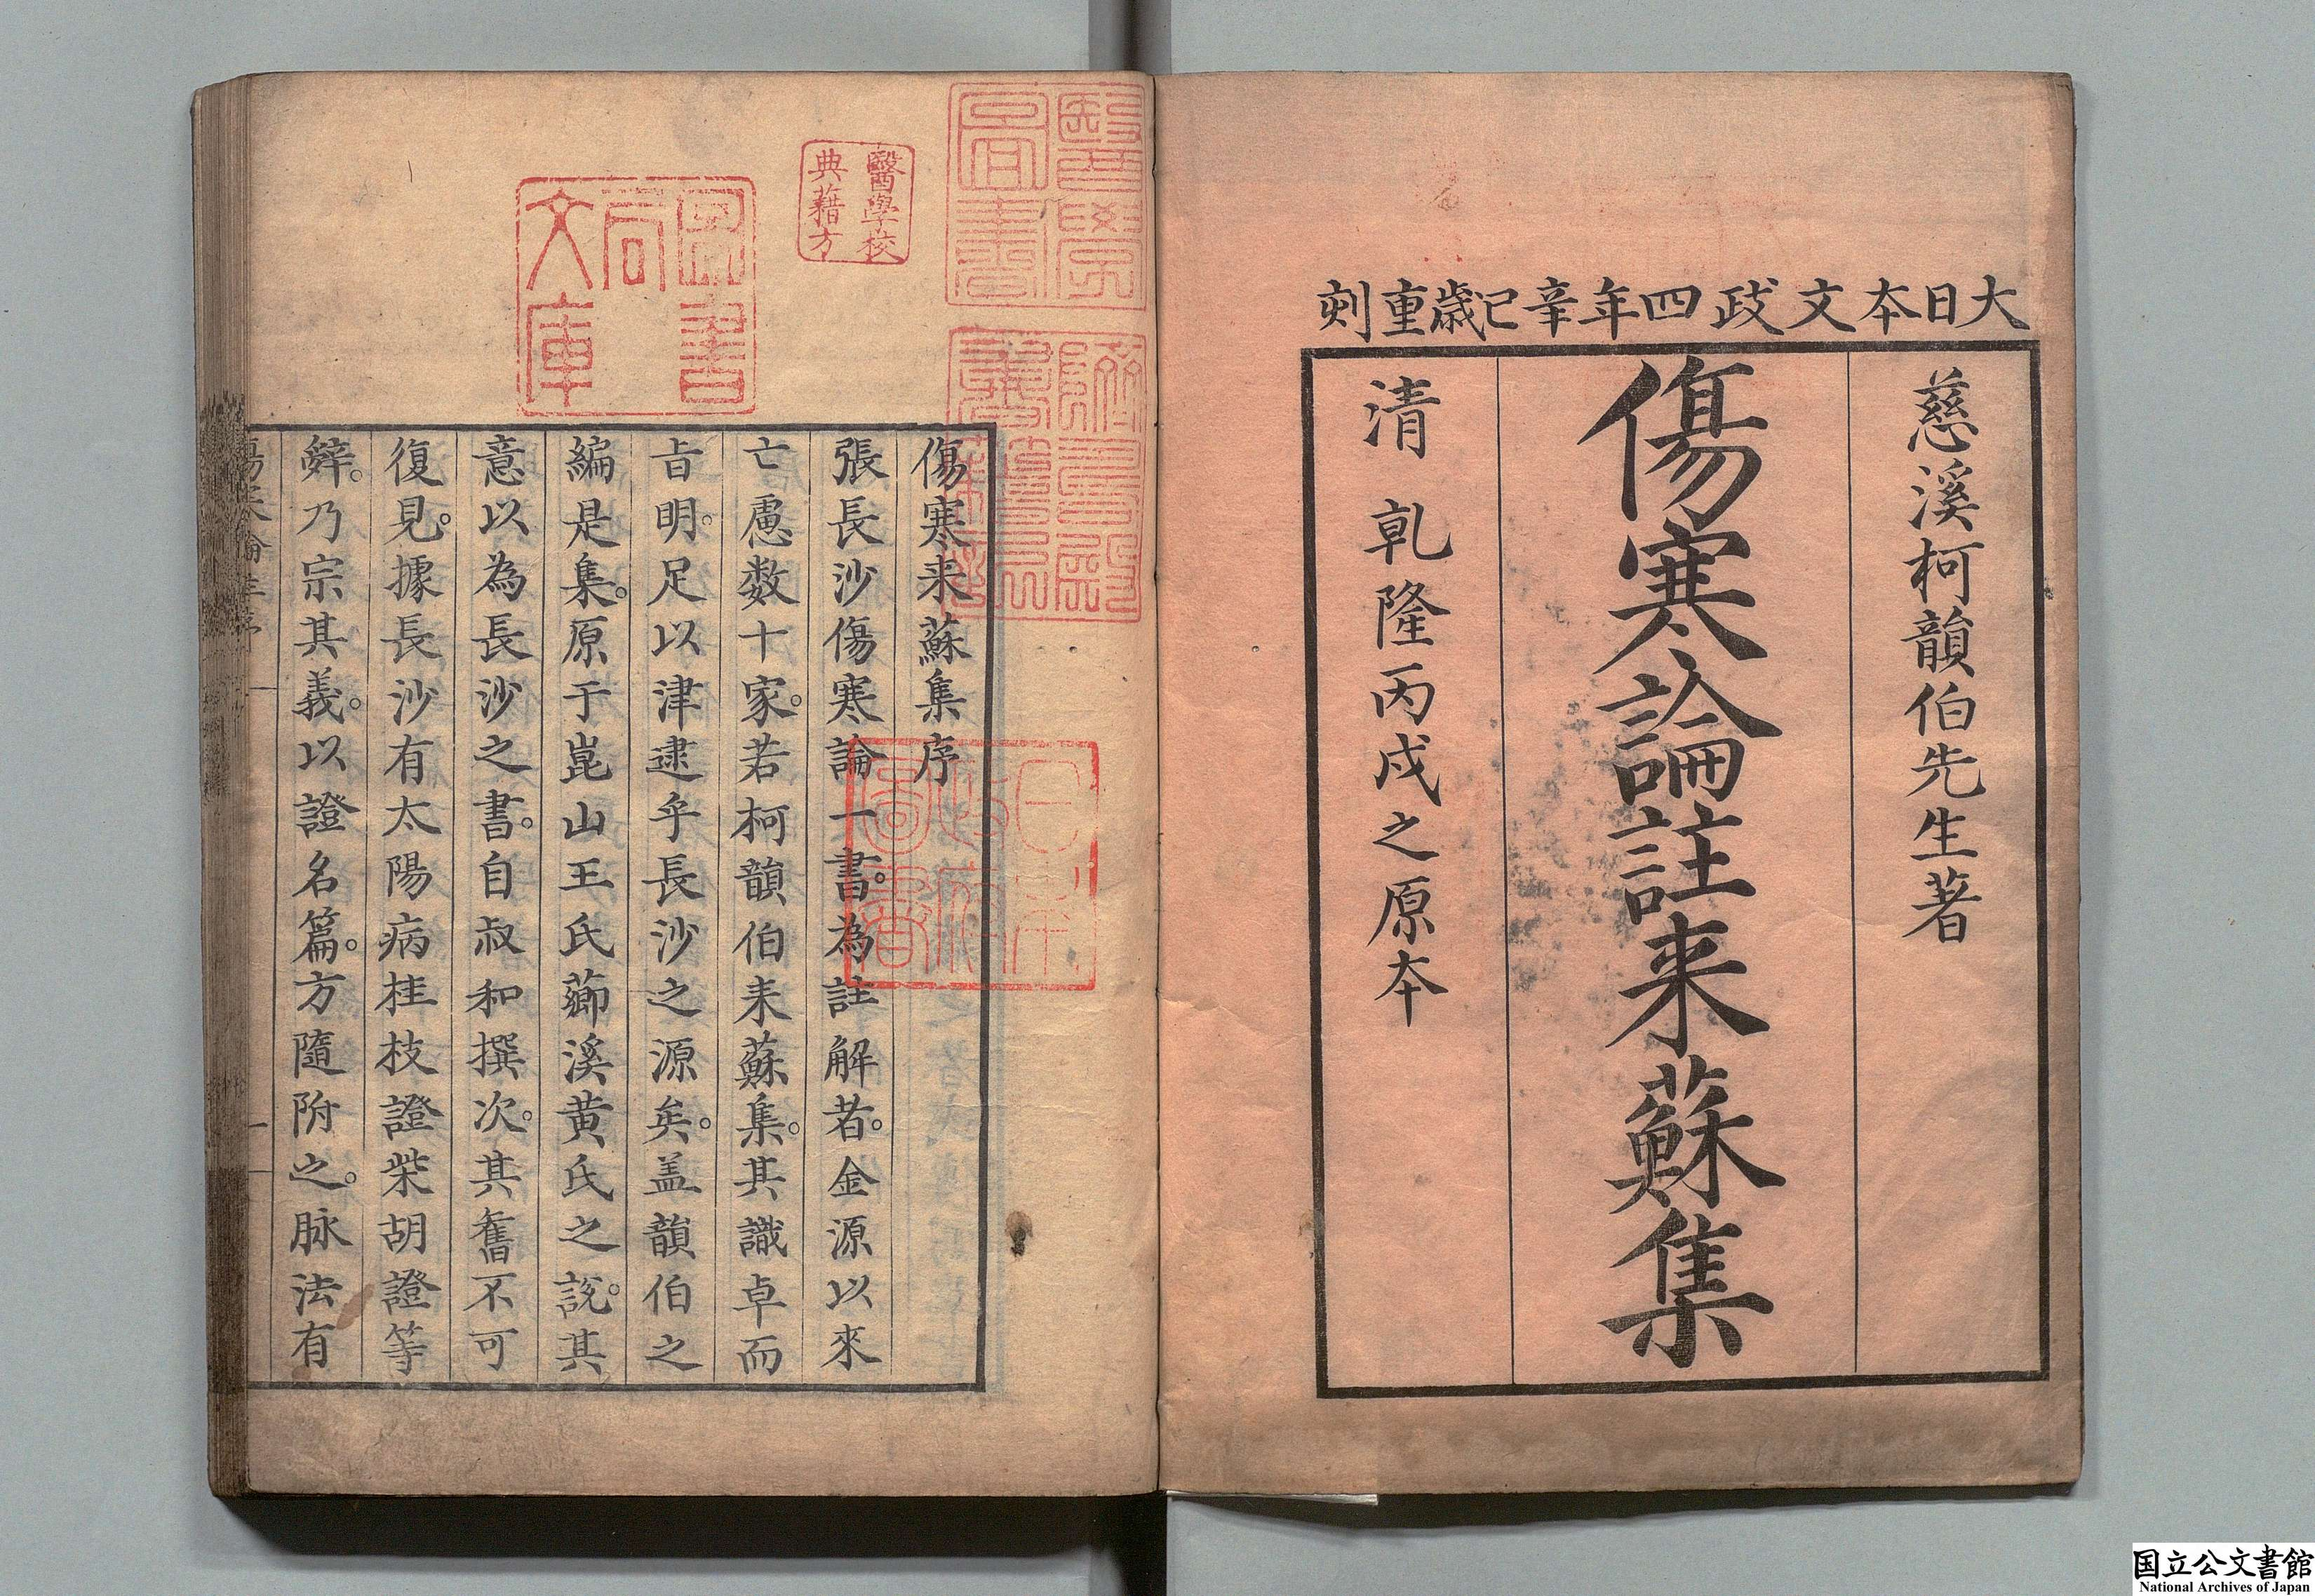 大日本文政四年辛巳歳重刻
慈溪柯韻伯先生著
傷寒論註来蘇集
清 乾隆丙戌之原本
醫學校
典籍方
圖書
局
文庫
傷寒来蘇集序
張長沙傷寒論一書。為註解者。金源以來
亡慮数十家。若柯韻伯来蘇集。其識卓而
㫖明。足以津逮乎長沙之源矣。盖韻伯之
編是集。原于崑山王氏薌溪黄氏之説。其
意以為長沙之書。自叔和撰次。其舊不可
復見。據長沙有太陽病桂枝證柴胡證等
辭。乃宗其義。以證名篇。方隨附之。脉法有
国立公文書館
National Archives of Japan